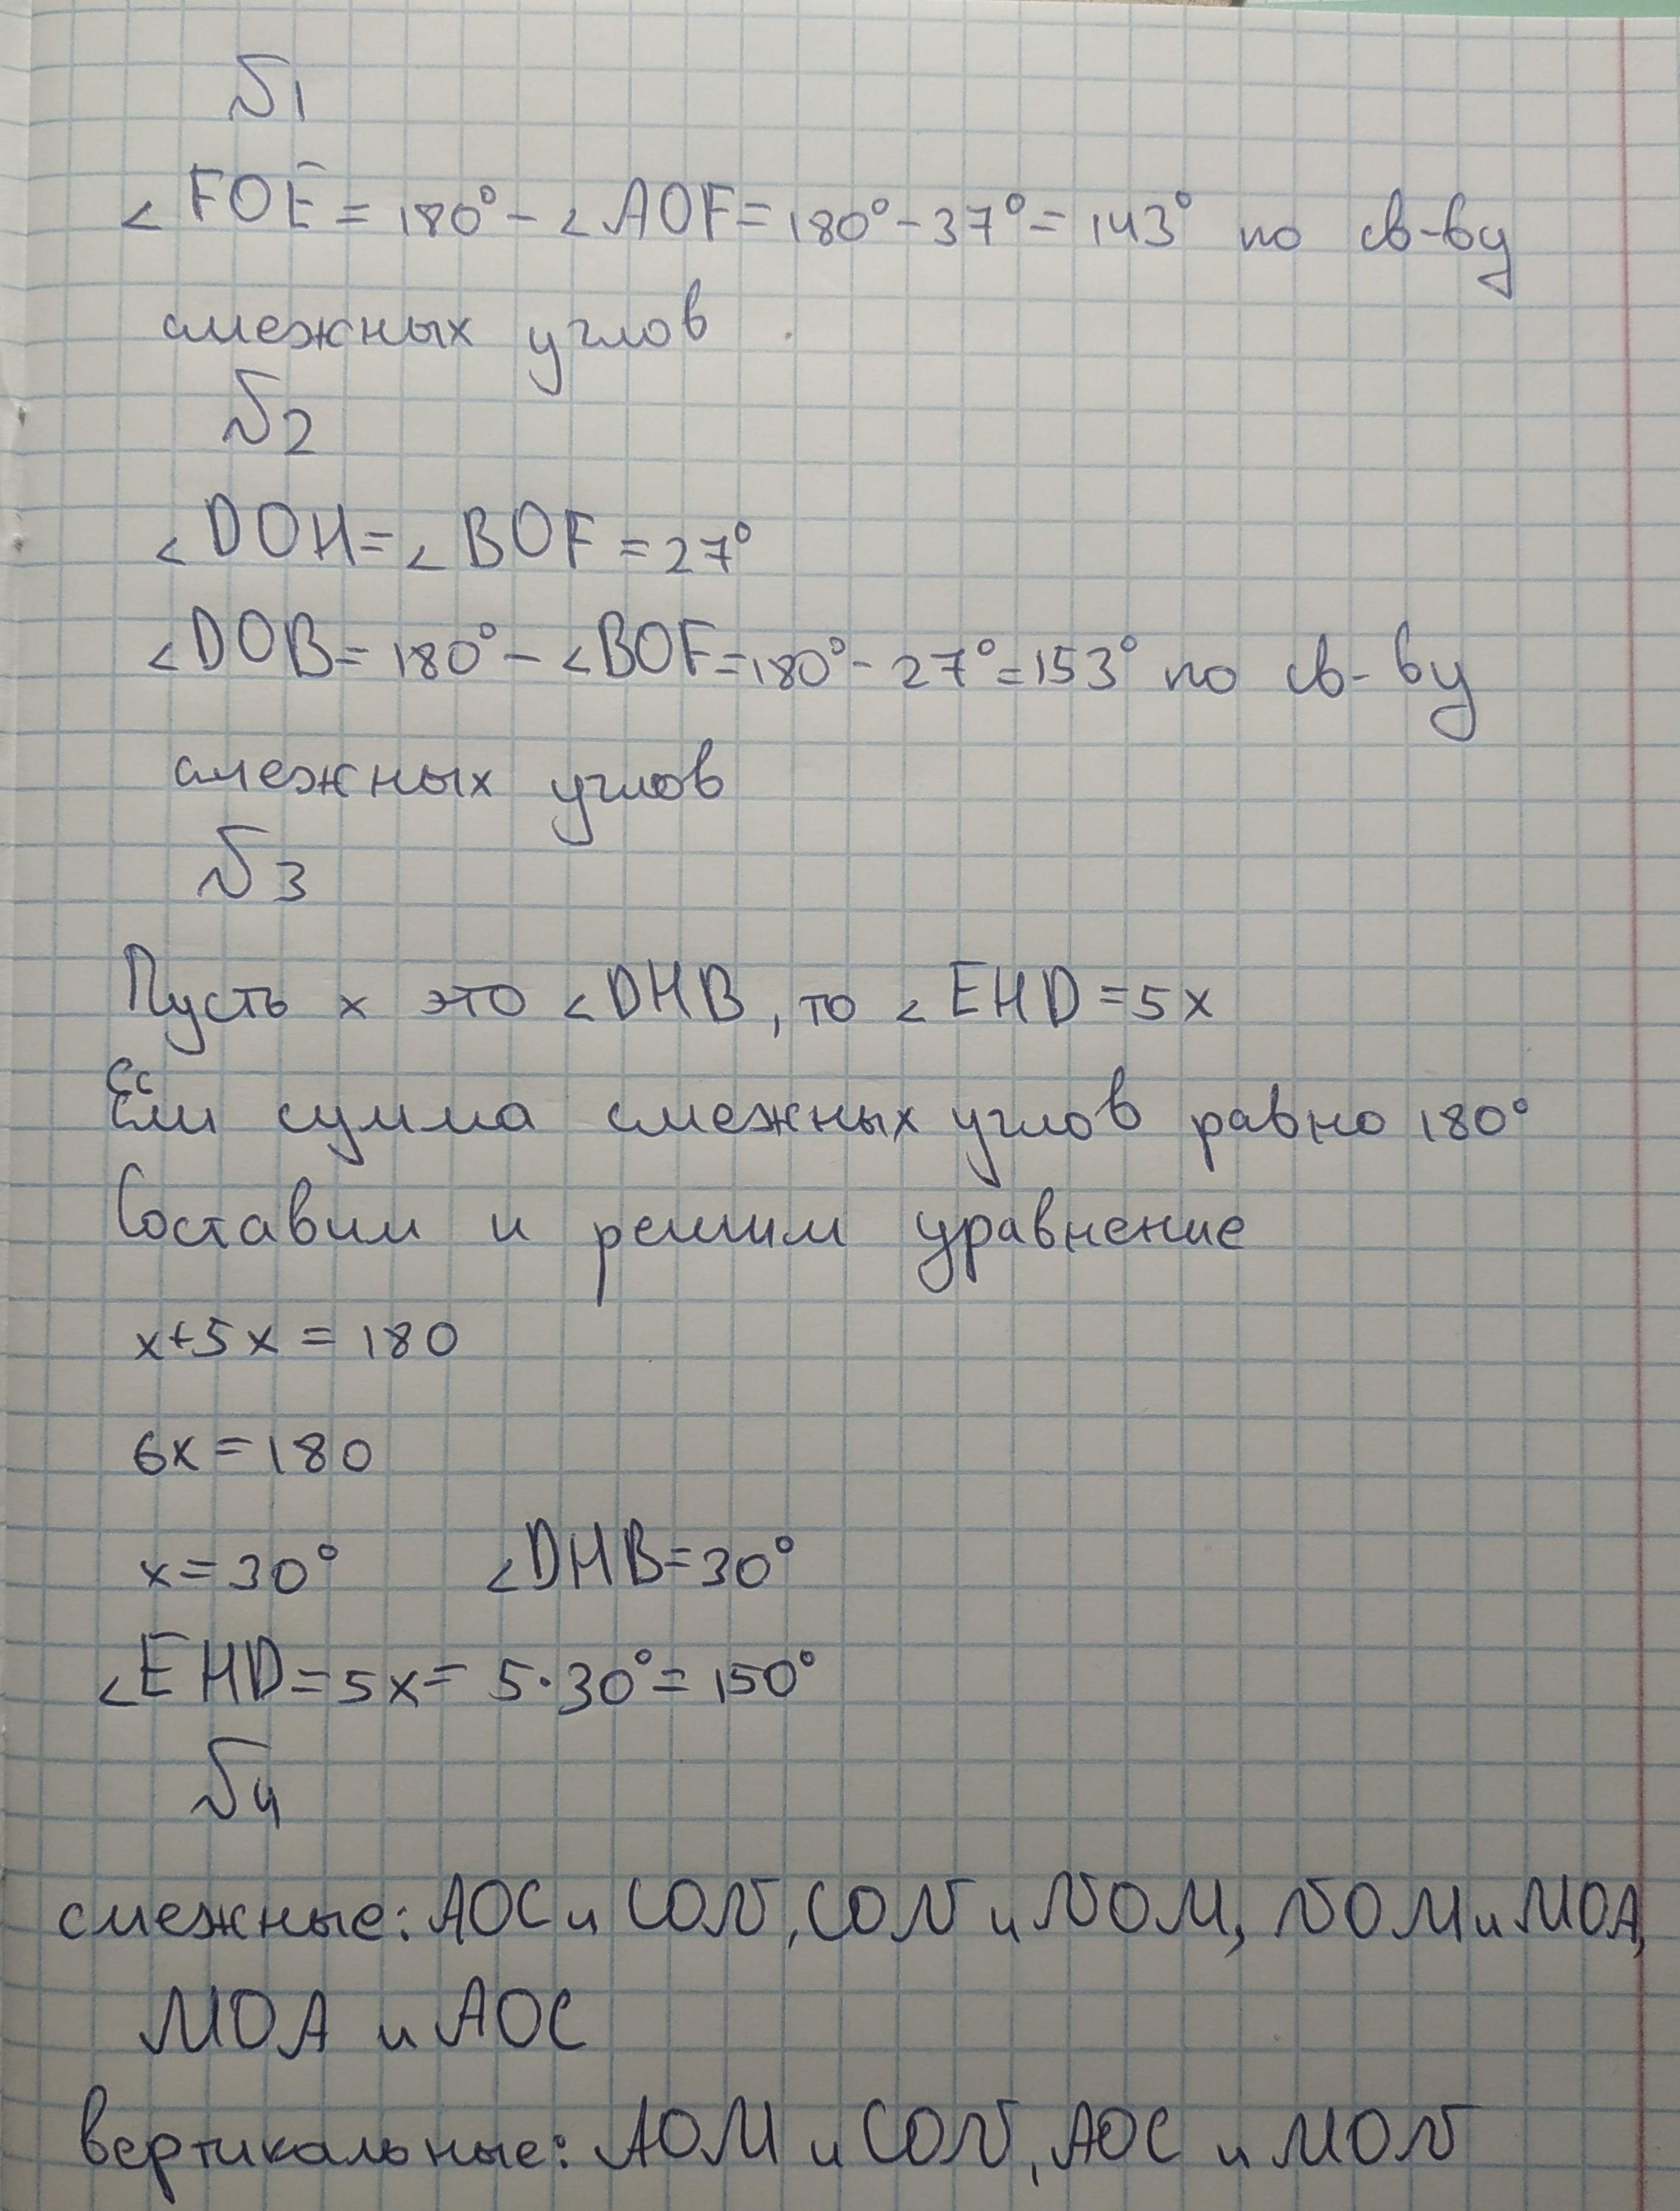 №1
∠FOE = 180° - ∠AOF = 180° - 37° = 143° по св-ву
смежных углов
№2
∠DOH = ∠BOF = 27°
∠DOB = 180° - ∠BOF = 180° - 27° = 153° по св-ву
смежных углов
№3
Пусть x это ∠DHB, то ∠EHD = 5x
Если сумма смежных углов равно 180°
Составим и решим уравнение
x+5x = 180
6x = 180
x = 30° ∠DHB = 30°
∠EHD = 5x = 5·30° = 150°
№4
смежные: AOC и CON, CON и NOM, NOM и MOA,
MOA и AOC
вертикальные: AOM и CON, AOC и MON